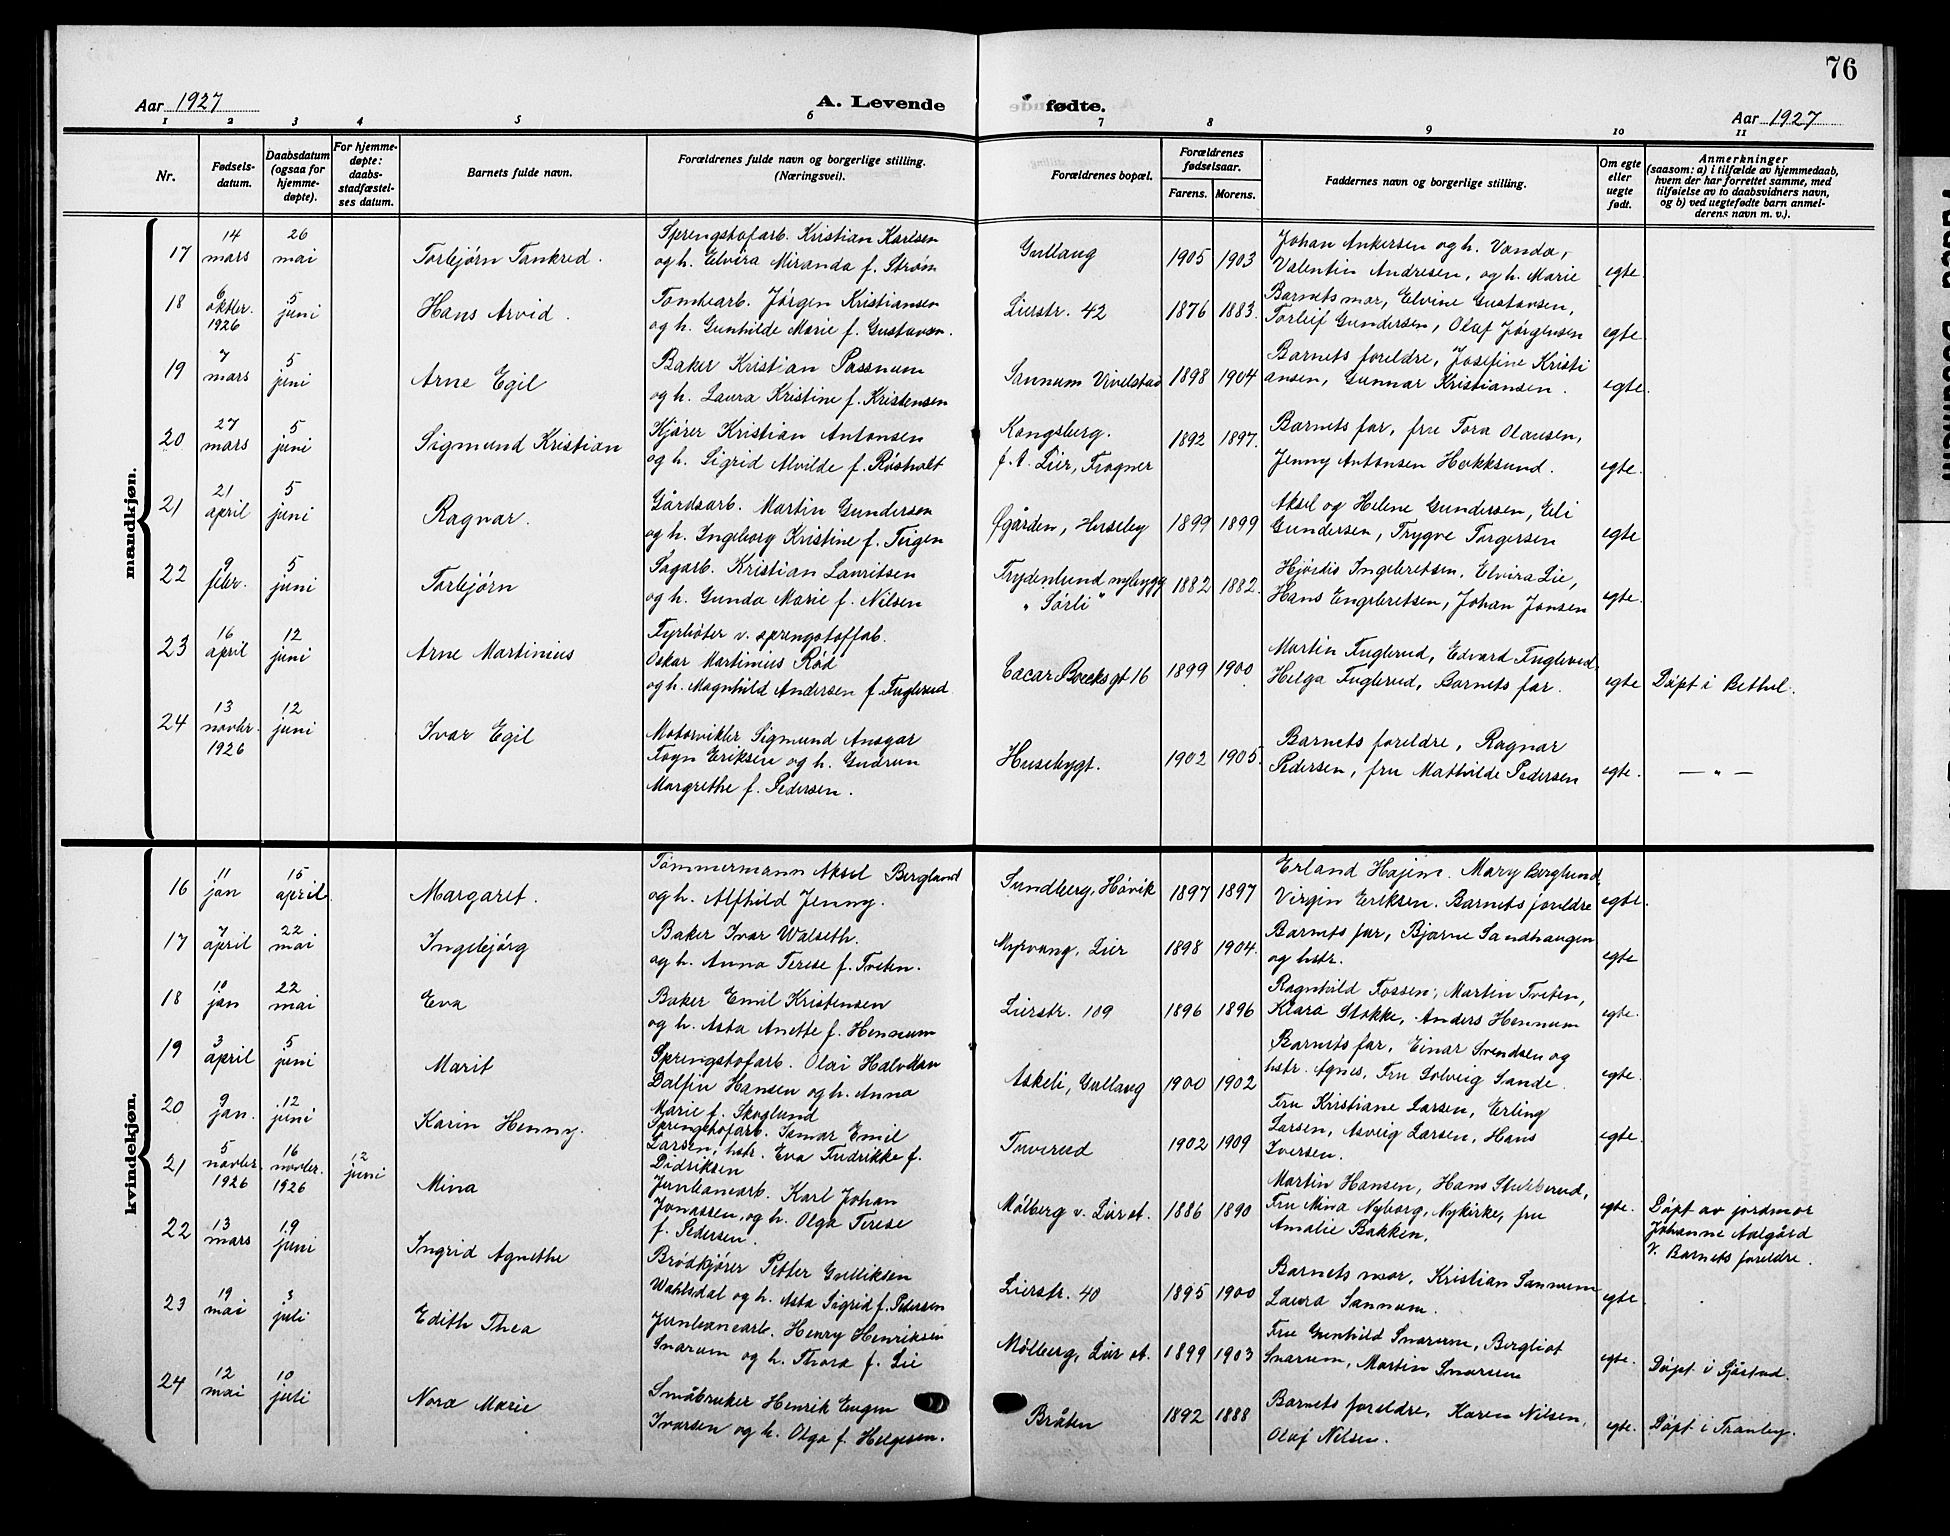 76
Aar 1927
A. Levende
fødte.
Aar 1927
1 2 3 4 5 6 7 8 9 10 11
Nr.
Fødsels-
datum.
Daabsdatum
(ogsaa for
hjemme-
døpte).
For hjemme-
døpte:
daabs-
stadfæstel-
ses datum.
Barnets fulde navn.
Forældrenes fulde navn og borgerlige stilling.
(Næringsvei).
Forældrenes bopæl.
Forældrenes
fødselsaar.
Farens. Morens.
Faddernes navn og borgerlige stilling.
Om egte
eller
uegte
født.
Anmerkninger
(saasom: a) i tilfælde av hjemmedaab,
hvem der har forrettet samme, med
tilføielse av to daabsvidners navn,
og b) ved uegtefødte barn anmel-
derens navn m. v.).
mandkjøn.
17
14
mars
26
mai
Torbjørn Tankred.
Sprengstofarb. Kristian Karlsen
og h. Elvira Miranda f. Strøm
Gullaug
1905 1903
Johan Ankersen og h. Vanda,
Valentin Andresen, og h. Marie
egte
18
6
oktbr.
1926
5
juni
Hans Arvid.
Tomtearb. Jørgen Kristiansen
og h. Gunhilde Marie f. Gustavsen.
Lierstr. 42
1876 1883.
Barnets mor, Elvine Gustavsen,
Torleif Gundersen, Olaf Jørgensen
egte
19
7
mars
5
juni
Arne Egil
Baker Kristian Passnum
og h. Laura Kristine f. Kristensen
Sannum Vivelstad
1898 1904
Barnets foreldre, Josefine Kristi
ansen, Gunnar Kristiansen.
egte.
20
27
mars
5
juni
Sigmund Kristian
Kjører Kristian Antonsen
og h. Sigrid Alvilde f. Røsholt
Kongsberg.
f. t. Lier, Frogner
1892 1897.
Barnets far, fru Tora Olausen,
Jenny Antonsen Hokksund.
egte.
21
21
april
5
juni
Ragnar.
Gårdsarb. Martin Gundersen
og h. Ingeborg Kristine f. Teigen
Øgården, Huseby
1899 1899
Aksel og Helene Gundersen, Eli
Gundersen, Trygve Torgersen
egte
22
9
febr.
5
juni
Torbjørn
Sagarb. Kristian Lauritsen
og h. Gunda Marie f. Nilsen
Frydenlund nybygg
"Sørli"
1882 1882.
Hjørdis Ingebretsen, Elvira Lie,
Hans Engebretsen, Johan Jonsen
egte.
23
16
april
12
juni
Arne Martinius
Fyrbøter v. sprengstoffab.
Oskar Martinius Rød
og h. Magnhild Andersen f. Fuglerud.
Cæcar Boecks gt 16
1899 1900
Martin Fuglerud, Edvard Fuglerud
Helga Fuglerud, Barnets far.
egte
Døpt i Bethel.
24
13
novbr.
1926
12
juni
Ivar Egil
Motorvikler Sigmund Ansgar
Fogn Eriksen og h. Gudrun
Margrethe f. Pedersen.
Husebygt.
1902 1905.
Barnets foreldre, Ragnar
Pedersen, fru Mathilde Pedersen
egte.
— " —
kvindekjøn.
16
11
jan
15
april
Margaret.
Tømmermann Aksel Berglund
og h. Alfhild Jenny.
Sundberg, Høvik
1897 1897
Erland Hajem. Mary Berglund,
Virgin Eriksen. Barnets foreldre
egte.
17
7
april
22
mai
Ingebjørg
Baker Ivar Walseth.
og h. Anna Terese f. Tveten.
Myrvang, Lier
1898 1904.
Barnets far, Bjarne Sandhaugen
og hstr.
egte
18
10
jan
22
mai
Eva
Baker Emil Kristensen
og h. Asta Anette f. Hennum
Lierstr. 109
1896 1896
Ragnhild Fossen, Martin Tveten,
Klara Stokke, Anders Hennum
egte.
19
3
april
5
juni
Marit
Sprengstofarb. Olai Halvdan
Dalfin Hansen og h. Anna
Marie f. Skoglund
Askeli, Gullaug
1900 1902
Barnets far, Einar Svendsen og
hstr. Agnes, Fru Solveig Sande.
egte.
20
9
jan.
12
juni
Karin Henny.
Sprengstofarb. Ismar Emil
Larsen, hstr. Eva Fredrikke f.
Didriksen
Tuverud
1902 1909
Fru Kristiane Larsen, Erling
Larsen, Asveig Larsen, Hans
Iversen.
egte.
21
5
novbr.
1926
16
novbr.
1926
12
juni
Mina
Jernbanearb. Karl Johan
Jonassen, og h. Olga Terese
f. Pedersen.
Mølberg v. Lier st.
1886 1890
Martin Hansen, Hans Stubberud,
Fru Mina Nyborg, Nykirke, fru
Amalie Bakken,
egte.
Døpt av jordmor
Johanne Aalgård
V. Barnets foreldre.
22
13
mars
19
juni
Ingrid Agnethe
Brødkjører Petter Gulliksen
Wahlsdal og h. Asta Sigrid f. Pedersen
Lierstr. 40
1895 1900
Barnets mor, Kristian Sannum
Laura Sannum.
egte.
23
19
mai
3
juli
Edith Thea
Jernbanearb. Henry Henriksen
Snarum og h. Thora f. Lie
Mølberg, Lier st.
1899 1903
Fru Gunhild Snarum, Bergliot
Snarum, Morten Snarum
egte.
Døpt i Sjåstad.
24
12
mai
10
juli
Nora Marie
Småbruker Henrik Eugen
Ivarsen og h. Olga f. Helgesen.
Bråten
1892 1888
Barnets foreldre, Karen Nilsen,
Olaf Nilsen.
egte.
Døpt i Tranby.